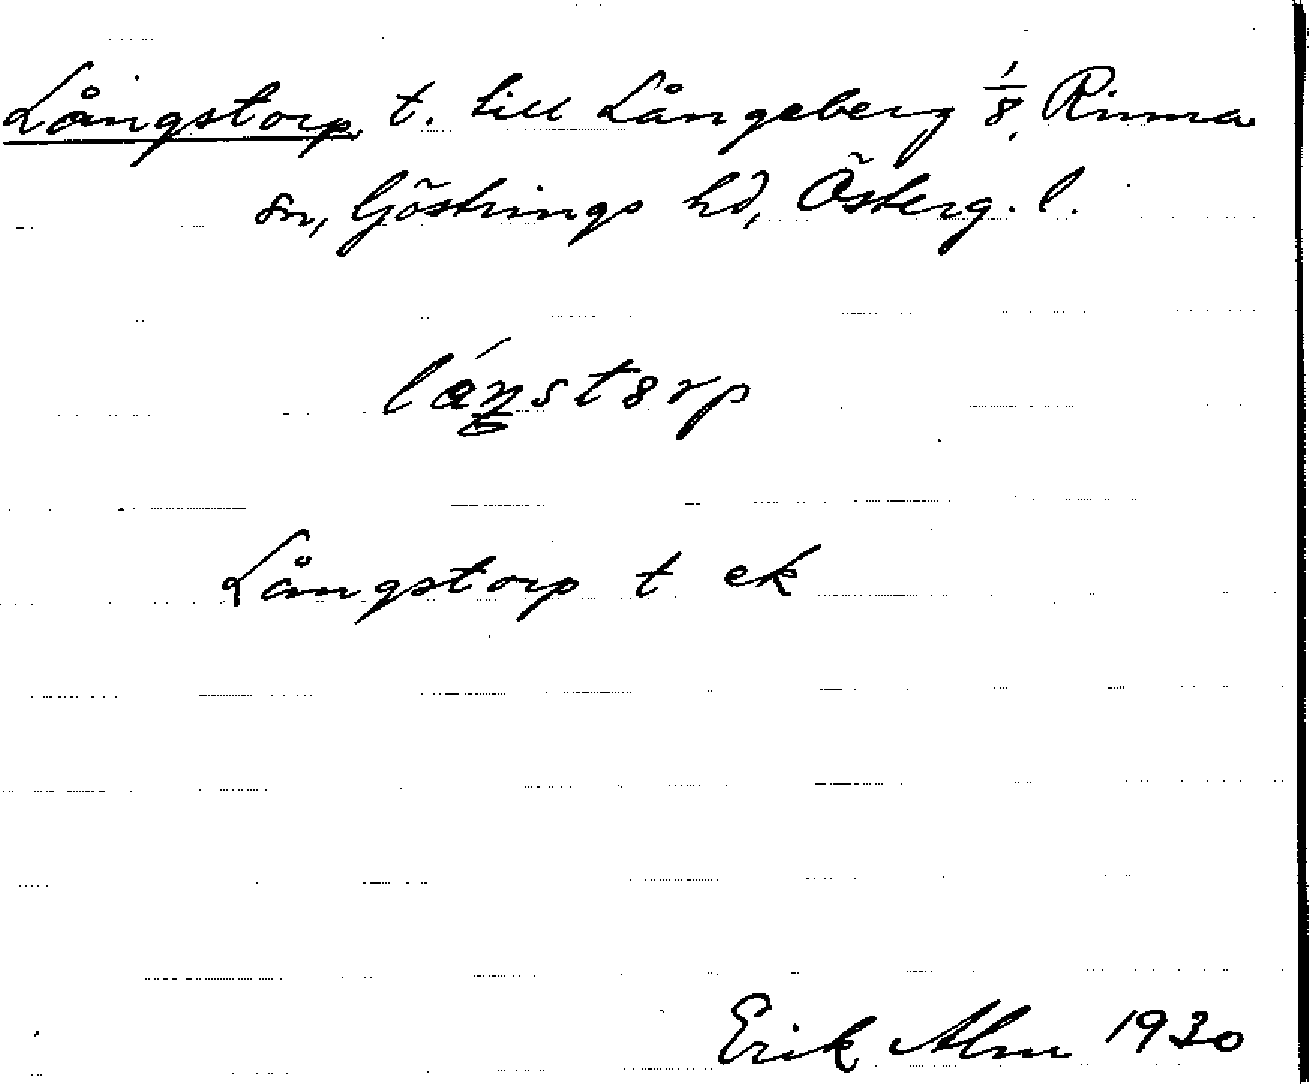 Långstorp t. till Långeberg 1/8, Rinna
sn, Göstrings hd, Österg. l.
Långstorp t ek
Erik Alm 1930